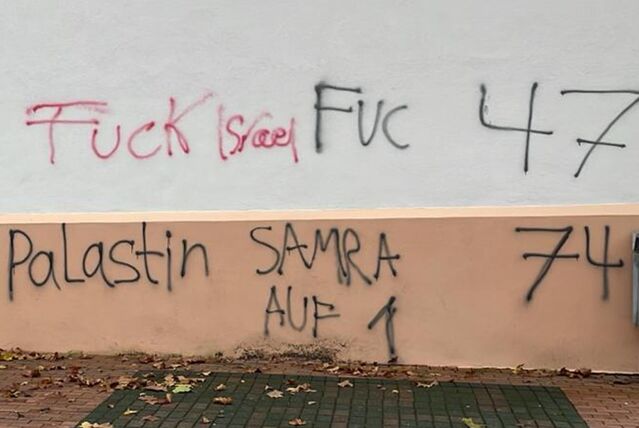 Fuck Israel FUC 47
Palastin SAMRA 74
AUF 1